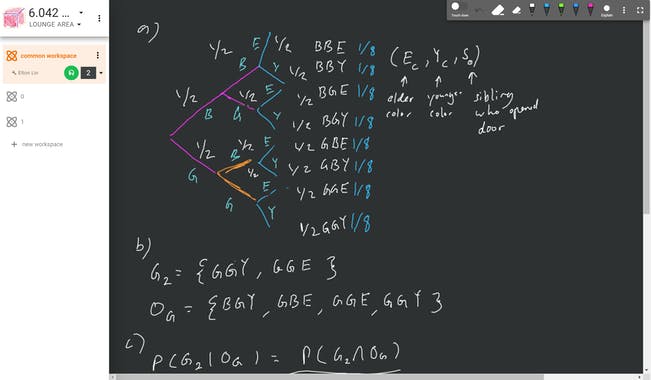 6.042 ...
LOUNGE AREA
common workspace
Elton Lin
2
0
1
+ new workspace
Touch down
Explain
a)
1/2 E 1/2 BBE 1/8
B Y 1/2 BBY 1/8
1/2 1/2 E 1/2 BGE 1/8
B G Y 1/2 BGY 1/8
1/2 B 1/2 E 1/2 GBE 1/8
G 1/2 Y 1/2 GBY 1/8
E 1/2 GGE 1/8
G Y 1/2 GGY 1/8
(E_C, Y_C, S_o)
older color
younger color
sibling who opened door
b)
G_2 = { GGY, GGE }
O_G = { BGY, GBE, GGE, GGY }
c)
P(G_2 | O_G) = P(G_2 ∩ O_G)